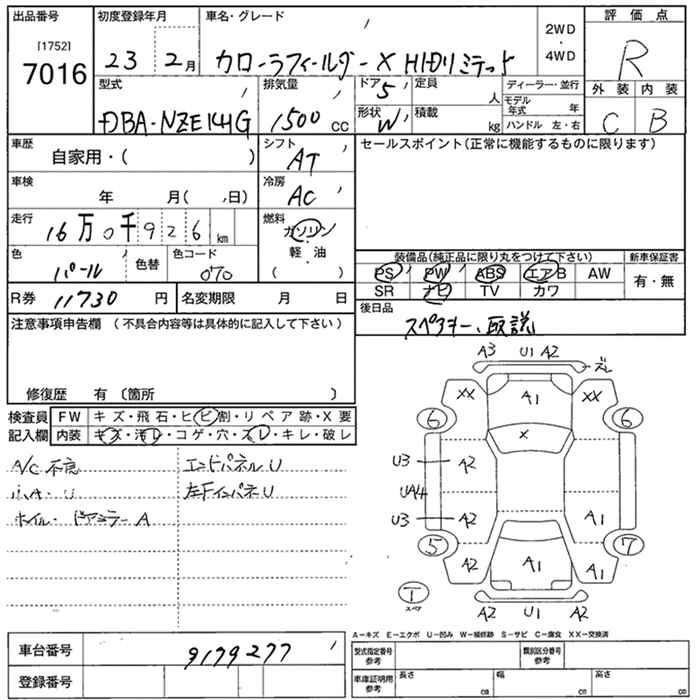 出品番号 初度登録年月 車名・グレード 評価点
[1752]
7016 23 2月 カローラフィールダー X HIDリミテッド 2WD ・ 4WD R
型式 排気量 ドア 5 定員 人 ディーラー・並行 外装 内装
DBA-NZE141G 1500 cc 形状 W 積載 kg モデル年式 年 C B
ハンドル 左・右
車歴 シフト セールスポイント(正常に機能するものに限ります)
自家用・( ) AT
車検 年 月( 、日) 冷房 AC
走行 16万0千926km 燃料 ガソリン
色 パール 色替 色コード 070 軽・油 ( )
装備品(純正品に限り丸をつけて下さい) 新車保証書
PS PW ABS エアB AW 有・無
SR ナビ TV カワ
R券 11730 円 名変期限 月 日 後日品
スペアキー、取説
注意事項申告欄 (不具合内容等は具体的に記入して下さい)
修復歴 有 (箇所 )
検査員記入欄 FW キズ・飛石・ヒビ割・リペア跡・X要
内装 キズ・汚レ・コゲ・穴・ズレ・キレ・破レ
A/C不良 エンドパネルU
小A・U
ホイル・ドアミラーA
A3 U1 A2 ズレ
XX A1 XX
6 6
X
U3 A2
UA14
U3 A2 A1
5 7
A2 A1 A1
1
スペア
A2 U1 A2
A−キズ E−エクボ U−凹み W−補修跡 S−サビ C−腐食 XX−交換済
車台番号 9179277 型式指定番号 参考 類別区分番号 参考
登録番号 車庫証明用 参考 長さ cm 幅 cm 高さ cm